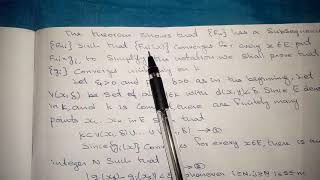 The theorem shows that {fn} has a Subsequence
{fni} Such that {fni(x)} Converges for every x∈E put
fni = gi, to Simplify the notation we Shall prove that
{gi} Converges uniformly on K
Let ε>0 and δ>0 as in the beginning, Let
V(x,δ) be Set of all y∈K with d(x,y)<δ Since E dense
in K, and K is Compact there are finitely many
points x1, xm in E such that
K⊂V(x1,δ) ∪
Since {gi(x)} Converges for every x∈E, there is an
integer N Such that
|gi(xs) - gj(xs)| < whenever i≥N, j≥N